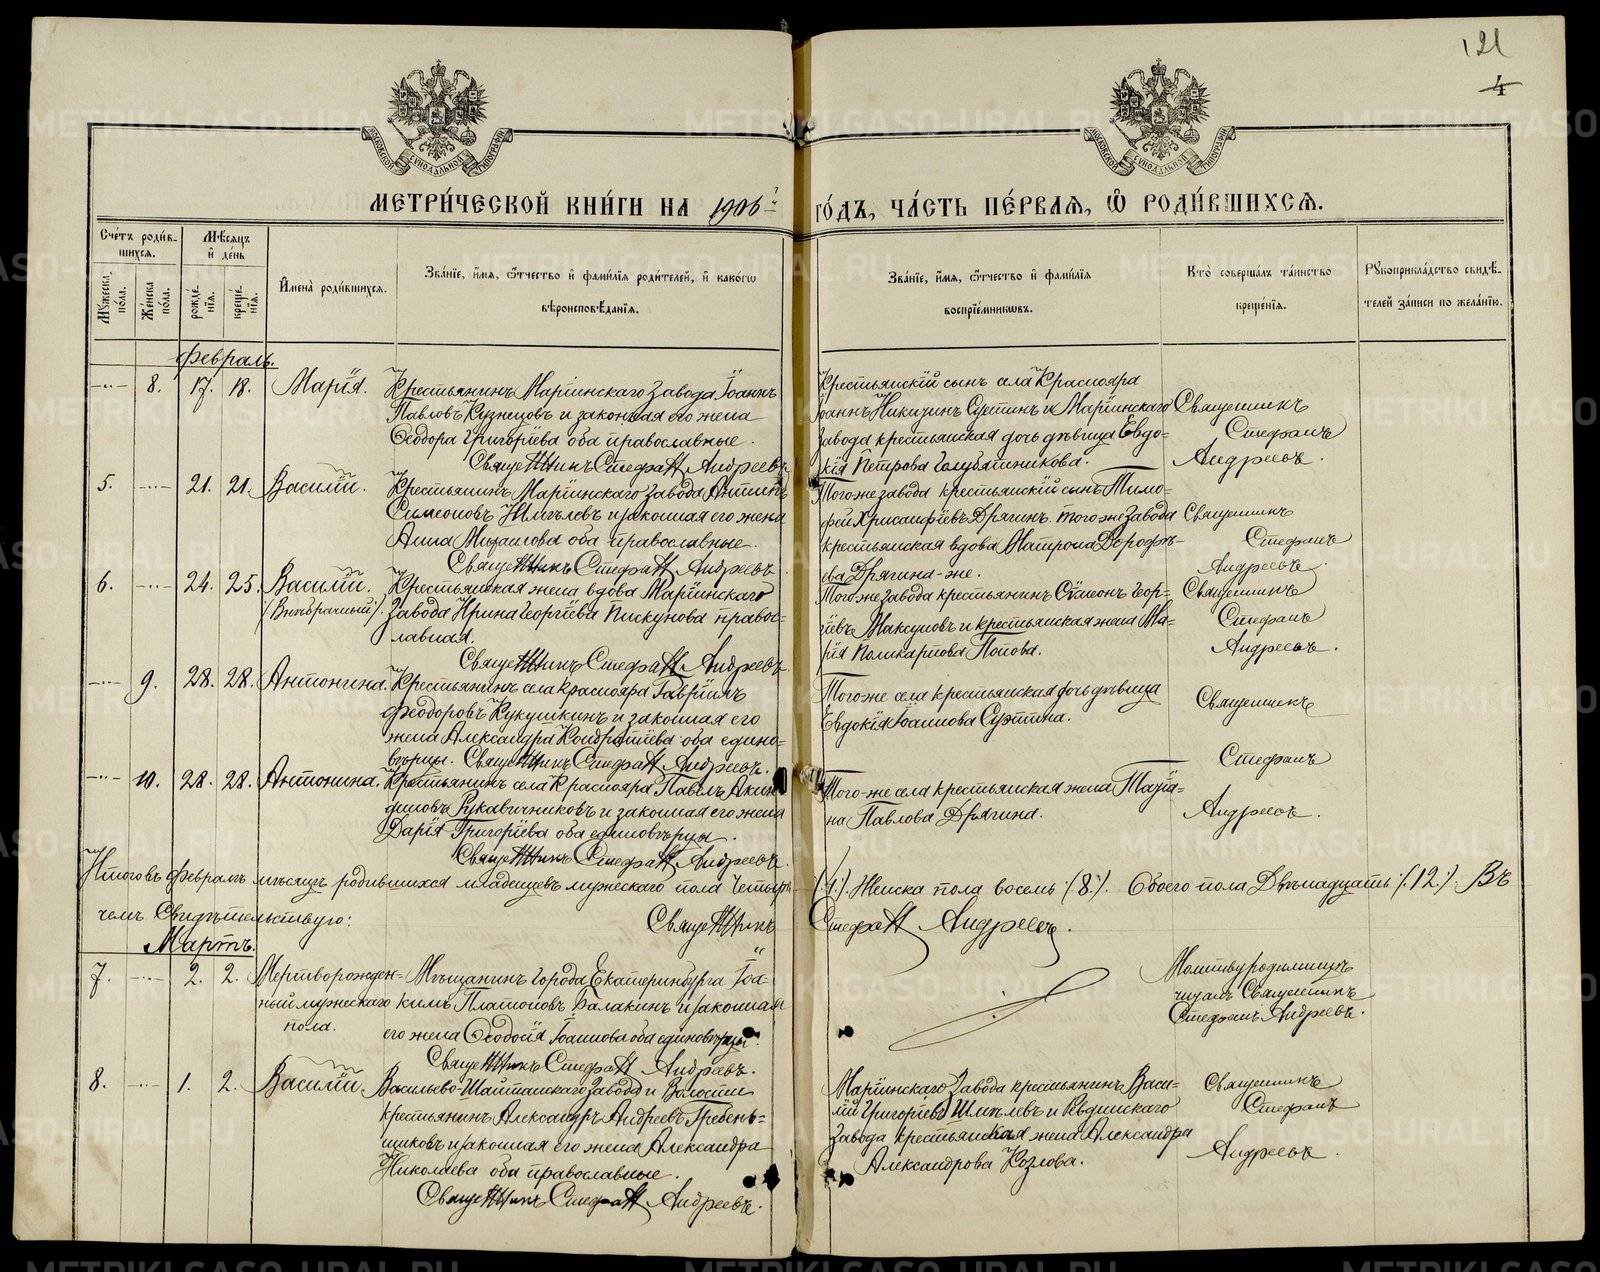 121
4
МОСКОВСКОЙ СѴНОДАЛЬНОЙ ТИПОГРАФІИ
МОСКОВСКОЙ СѴНОДАЛЬНОЙ ТИПОГРАФІИ
МЕТРИ́ЧЕСКОЙ КНИ́ГИ НА 1906й ГО́ДЪ, ЧА́СТЬ ПЕ́РВАЯ, Ѡ РОДИ́ВШИХСЯ.
Сче́тъ роди́вшихся.
Мꙋ́жеска по́ла.
Же́нска по́ла.
Мѣ́сяцъ и҆ де́нь
рожде́нїя.
креще́нїя.
И҆мена̀ роди́вшихся.
Зва́нїе, и҆́мя, ѻ҆́тчество и҆ фами́лїя роди́телей, и҆ како́гѡ
вѣроисповѣ́данїя.
Зва́нїе, и҆́мя, ѻ҆́тчество и҆ фами́лїя
воспрїе́мникѡвъ.
Кто̀ соверша́лъ та́инство
креще́нїя.
Рꙋкоприкла́дство свидѣ́телей за́писи по жела́нїю.
Февраль.
8. 17. 18. Марія. Крестьянинъ Маріинскаго Завода Іоаннъ
Павловъ Кузнецовъ и законная его жена
Ѳеодора Григоріева оба православные.
Священникъ Стефанъ Андреевъ
Крестьянскій сынъ села Краснояра
Іоаннъ Никизинъ Суетинъ и Маріинскаго
завода крестьянская дочь дѣвица Евдо-
кія Петрова Голубятникова.
Священникъ
Стефанъ
Андреевъ.
5. 21. 21. Василій. Крестьянинъ Маріинскаго завода
Симеоновъ и законная его жена
Анна Михаилова оба православные.
Священникъ Стефанъ Андреевъ
Того же завода крестьянскій сынъ Тимо-
фей Хрисанфіевъ Дрягинъ. того же Завода
крестьянская вдова Матрона Дорофѣ-
ева Дрягина-же.
Священникъ
Стефанъ
Андреевъ.
6. 24. 25. Василій. Крестьянская жена вдова Маріинскаго
(Внѣбрачный). Завода Ирина Георгіева Пискунова право-
славная.
Священникъ Стефанъ Андреевъ
Того же Завода крестьянинъ Сѵмеонъ Геор-
гіевъ Максуновъ и крестьянская жена Ма-
рія Поликарпова Попова.
Священникъ
Стефанъ
Андреевъ.
9. 28. 28. Антонина. Крестьянинъ села Краснояра Гавріилъ
Феодоровъ Кукушкинъ и законная его
жена Александра Кондратіева оба едино-
вѣрцы. Священникъ Стефанъ Андреевъ.
Того же села крестьянская дочь дѣвица
Евдокія Іоаннова Суетина.
Священникъ
10. 28. 28. Антонина. Крестьянинъ села Краснояра Павелъ Акин-
диновъ Рукавичниковъ и законная его жена
Дарія Григоріева оба единовѣрцы.
Священникъ Стефанъ Андреевъ.
Того-же села крестьянская жена Таті-
на Павлова Дрягина.
Стефанъ
Андреевъ.
Итого въ Февралѣ мѣсяцѣ родившихся младенцевъ мужескаго пола Четыре (4.) Женска пола восемь (8.). Обоего пола Двѣнадцать (12.) Въ
чемъ Свидѣтельствую: Священникъ Стефанъ Андреевъ.
Мартъ.
7. 2. 2. Мертворожден- Мѣщанинъ Города Екатеринбурга Іоа-
ный мужескаго кимъ Платоновъ Балакинъ и законная
пола. его жена Ѳеодосія Іоаннова оба единовѣрцы.
Священникъ Стефанъ Андреевъ.
Молитву родильницѣ
читалъ Священникъ
Стефанъ Андреевъ.
8. 1. 2. Василій. Васильево-Шайтанскаго Завода и Волости
крестьянинъ Александръ Андреевъ Гребень-
щиковъ и законная его жена Александра
Николаева оба православные.
Священникъ Стефанъ Андреевъ.
Маріинскаго Завода крестьянинъ Васи-
лій Григоріевъ Шмелевъ и Ревдинскаго
Завода крестьянская жена Александра
Александрова Козлова.
Священникъ
Стефанъ
Андреевъ.
METRIKI.GASO-URAL.RU